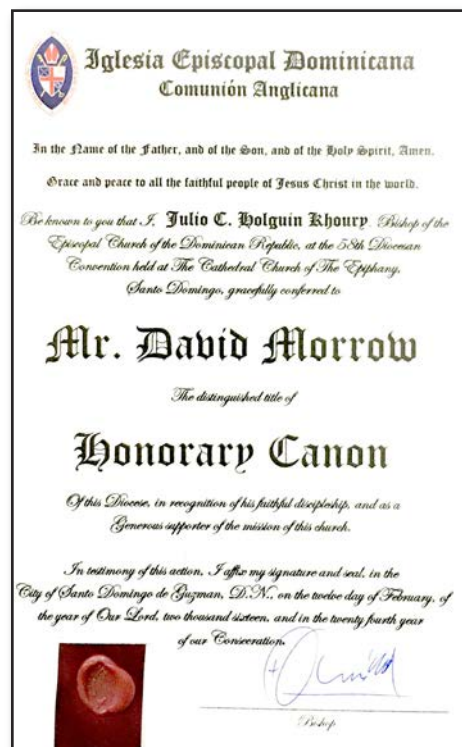 Iglesia Episcopal Dominicana
Comunión Anglicana
In the Name of the Father, and of the Son, and of the Holy Spirit, Amen.
Grace and peace to all the faithful people of Jesus Christ in the world.
Be known to you that I, Julio C. Holguin Khoury, Bishop of the
Episcopal Church of the Dominican Republic, at the 58th Diocesan
Convention held at The Cathedral Church of The Epiphany,
Santo Domingo, gracefully conferred to
Mr. David Morrow
The distinguished title of
Honorary Canon
Of this Diocese, in recognition of his faithful discipleship, and as a
Generous supporter of the mission of this church.
In testimony of this action, I affix my signature and seal, in the
City of Santo Domingo de Guzman, D.N., on the twelve day of February, of
the year of Our Lord, two thousand sixteen, and in the twenty fourth year
of our Consecration.
Bishop